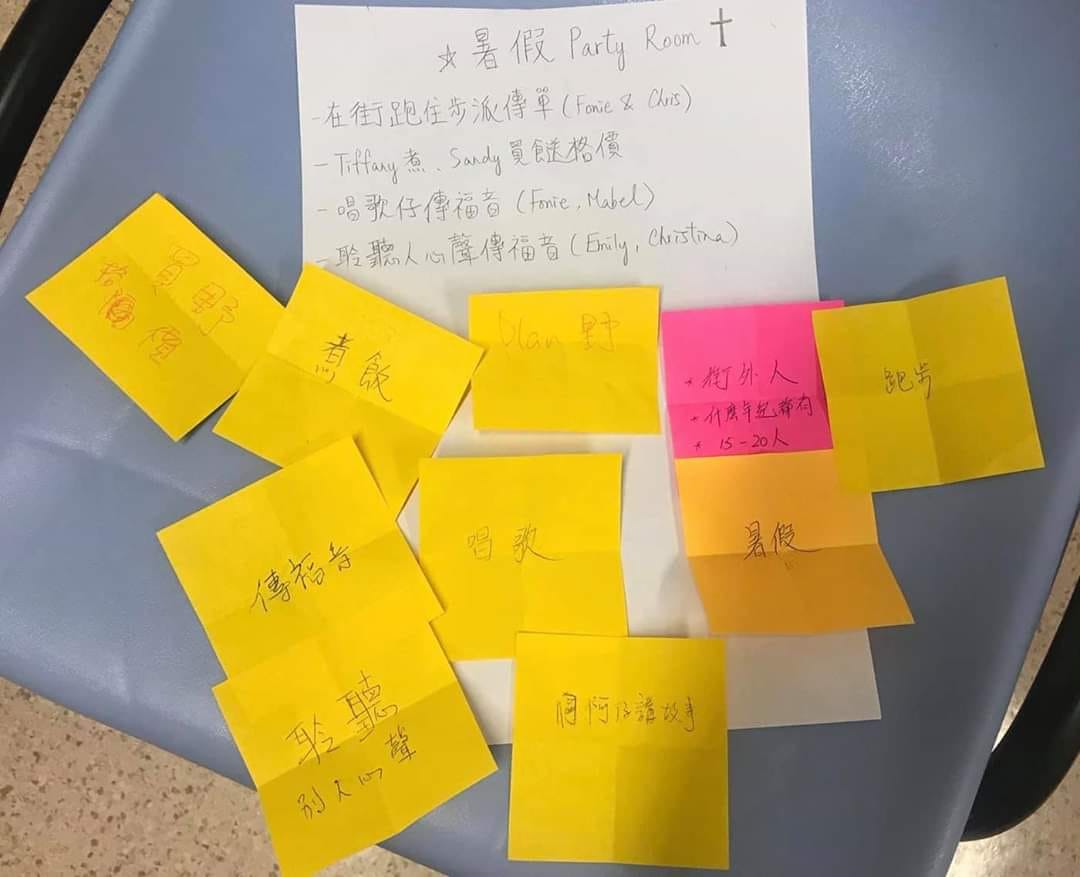 ☆暑假 Party Room ✝
- 在街跑住步派傳單 (Fonie & Chris)
- Tiffany煮、Sandy買餸格價
- 唱歌仔傳福音 (Fonie, Mabel)
- 聆聽人心聲傳福音 (Emily, Christina)
買野
格價
煮飯
plan 野
* 街外人
* 什麼年紀都有
* 15-20人
跑步
傳福音
唱歌
暑假
聆聽
別人心聲
阿仔講故事